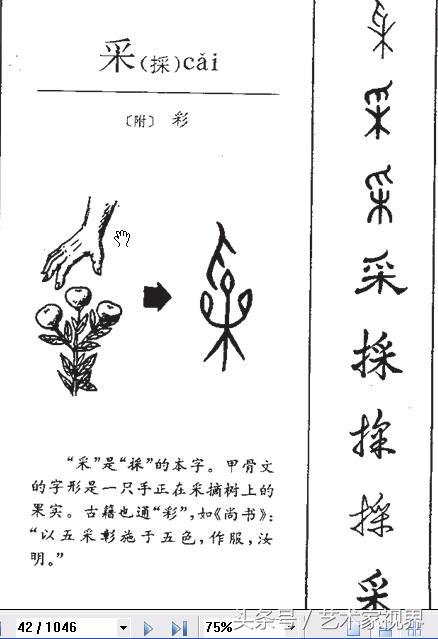 采(採)cǎi
〔附〕 彩
“采”是“採”的本字。甲骨文
的字形是一只手正在采摘树上的
果实。古籍也通“彩”,如《尚书》:
“以五采彰施于五色,作服,汝
明。”
采
採
採
採
采
42 / 1046
75%
头条号 / 艺术家视界